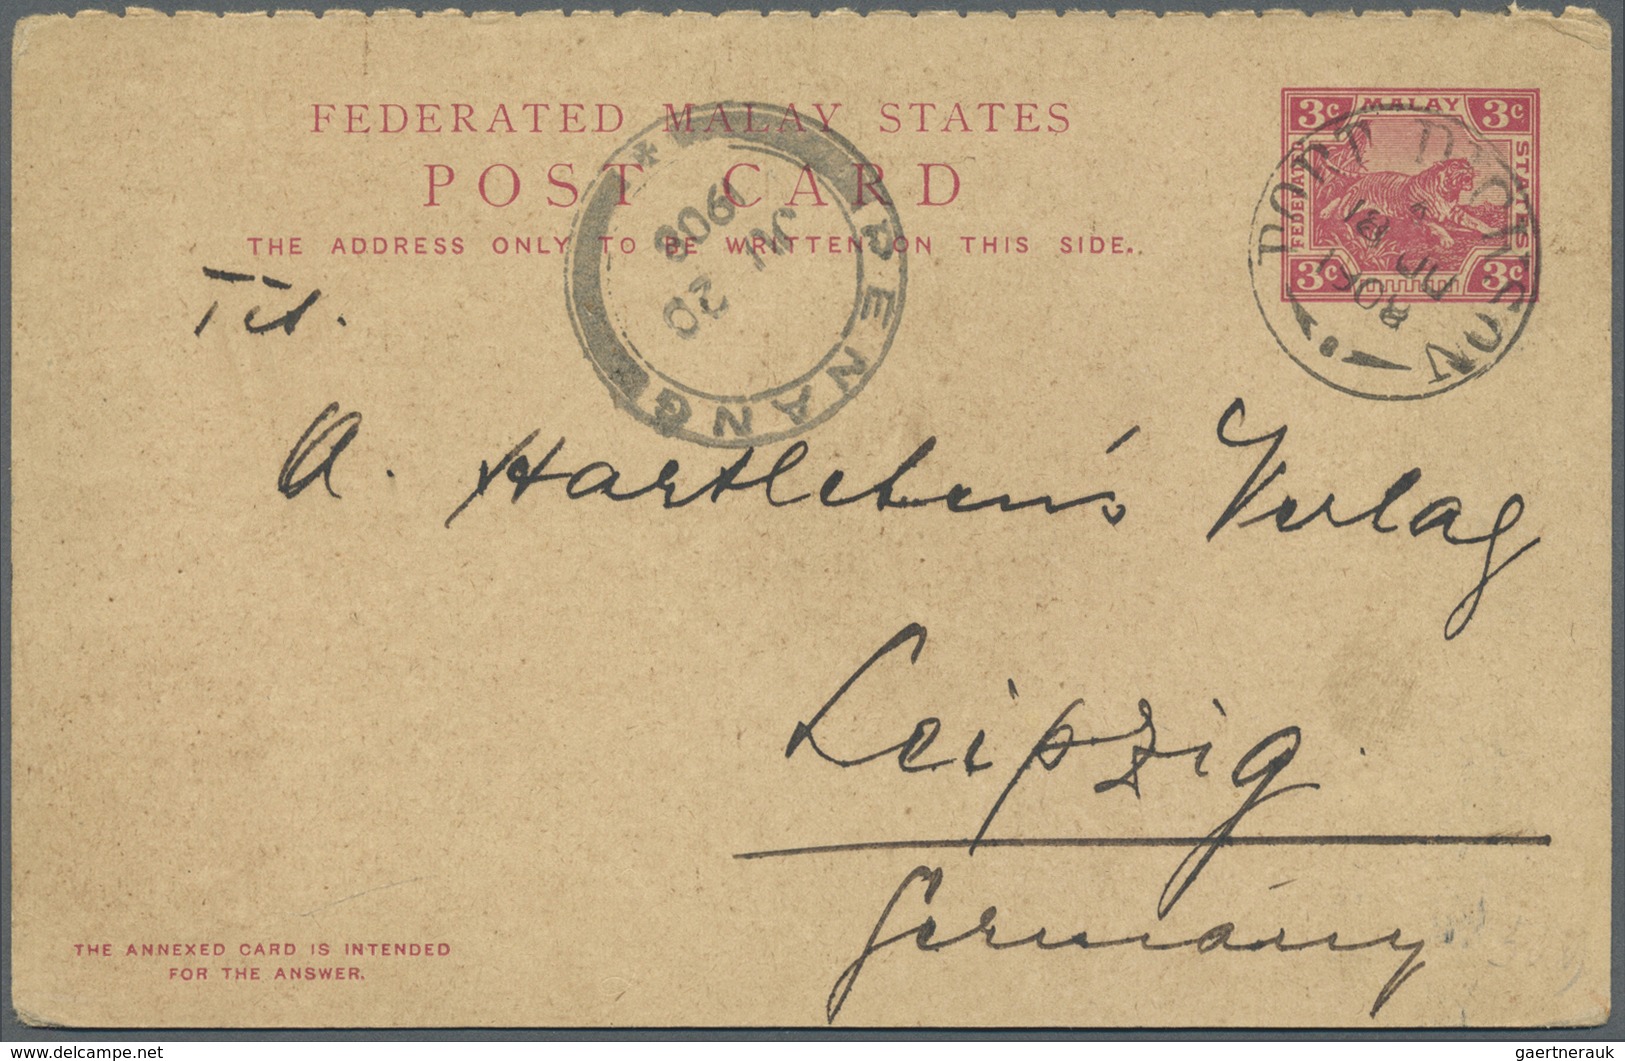 FEDERATED MALAY STATES
POST CARD
THE ADDRESS ONLY TO BE WRITTEN ON THIS SIDE.
3c MALAY 3c
FEDERATED
STATES
3c 3c
PORT DICKSON
JU
1908
PENANG
JU 20
1908
A. Hartleben's Verlag
Leipzig
Germany
THE ANNEXED CARD IS INTENDED
FOR THE ANSWER.
delcampe.net
gaertnerauk